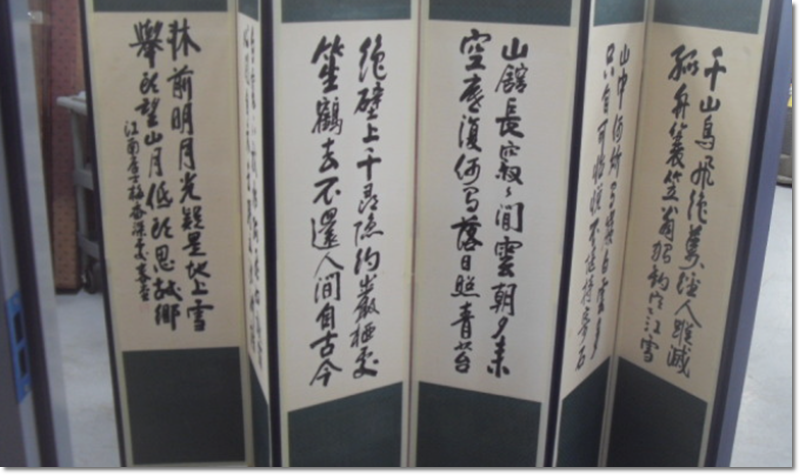 千山鳥飛絶萬逕人蹤滅
孤舟蓑笠翁獨釣寒江雪
山中何所有嶺上白雲多
只自可怡悅不堪持寄君
山館長寂寂閒雲朝夕来
空庭復何有落日照青苔
絶壁上千尋隱約巖栖處
笙鶴去不還人間自古今
牀前明月光疑是地上霜
擧頭望山月低頭思故鄉
江南居士